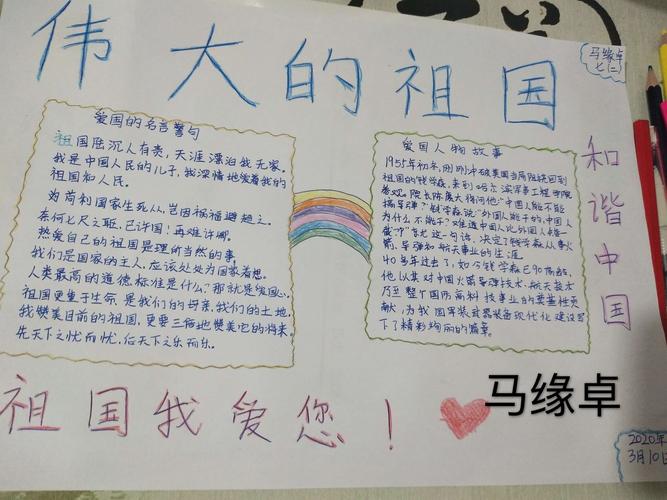 伟大的祖国
马缘卓
七(二)
爱国的名言警句
祖国陆沉人有责,天涯漂泊我无家。
我是中国人民的儿子,我深情地爱着我的
祖国和人民。
为苟利国家生死从,岂因祸福避趋之。
奈何七尺之躯,已许国,再难许卿。
热爱自己的祖国是理所当然的事。
我们是国家的主人,应该处处为国家着想。
人类最高的道德标准是什么?那就是爱国心。
祖国更重于生命,是我们的母亲,我们的土地。
我赞美目前的祖国,更要三倍地赞美它的将来。
先天下之忧而忧,后天下之乐而乐。
爱国人物故事
1955年初冬,刚刚冲破美国当局阻挠回到
祖国的钱学森,来到哈尔滨军事工程学院
参观。院长陈赓大将问他:"中国人能不能
搞导弹?"钱学森说:"外国人能干的,中国人
为什么不能干?难道中国人比外国人矮一
截?"就这一句话,决定了钱学森从事火
箭、导弹和航天事业的生涯
40多年过去了,如今钱学森已90高龄,
他以其对中国火箭导弹技术、航天技术
乃至整个国防高科技事业的奠基性贡
献,为我国军装武器装备现代化建设写
下了精彩绚丽的篇章。
和谐中国
祖国我爱您!
马缘卓
2020年
3月10日